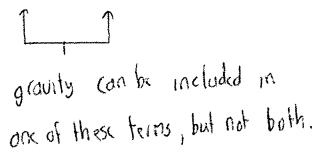 gravity can be included in
one of these terms, but not both.